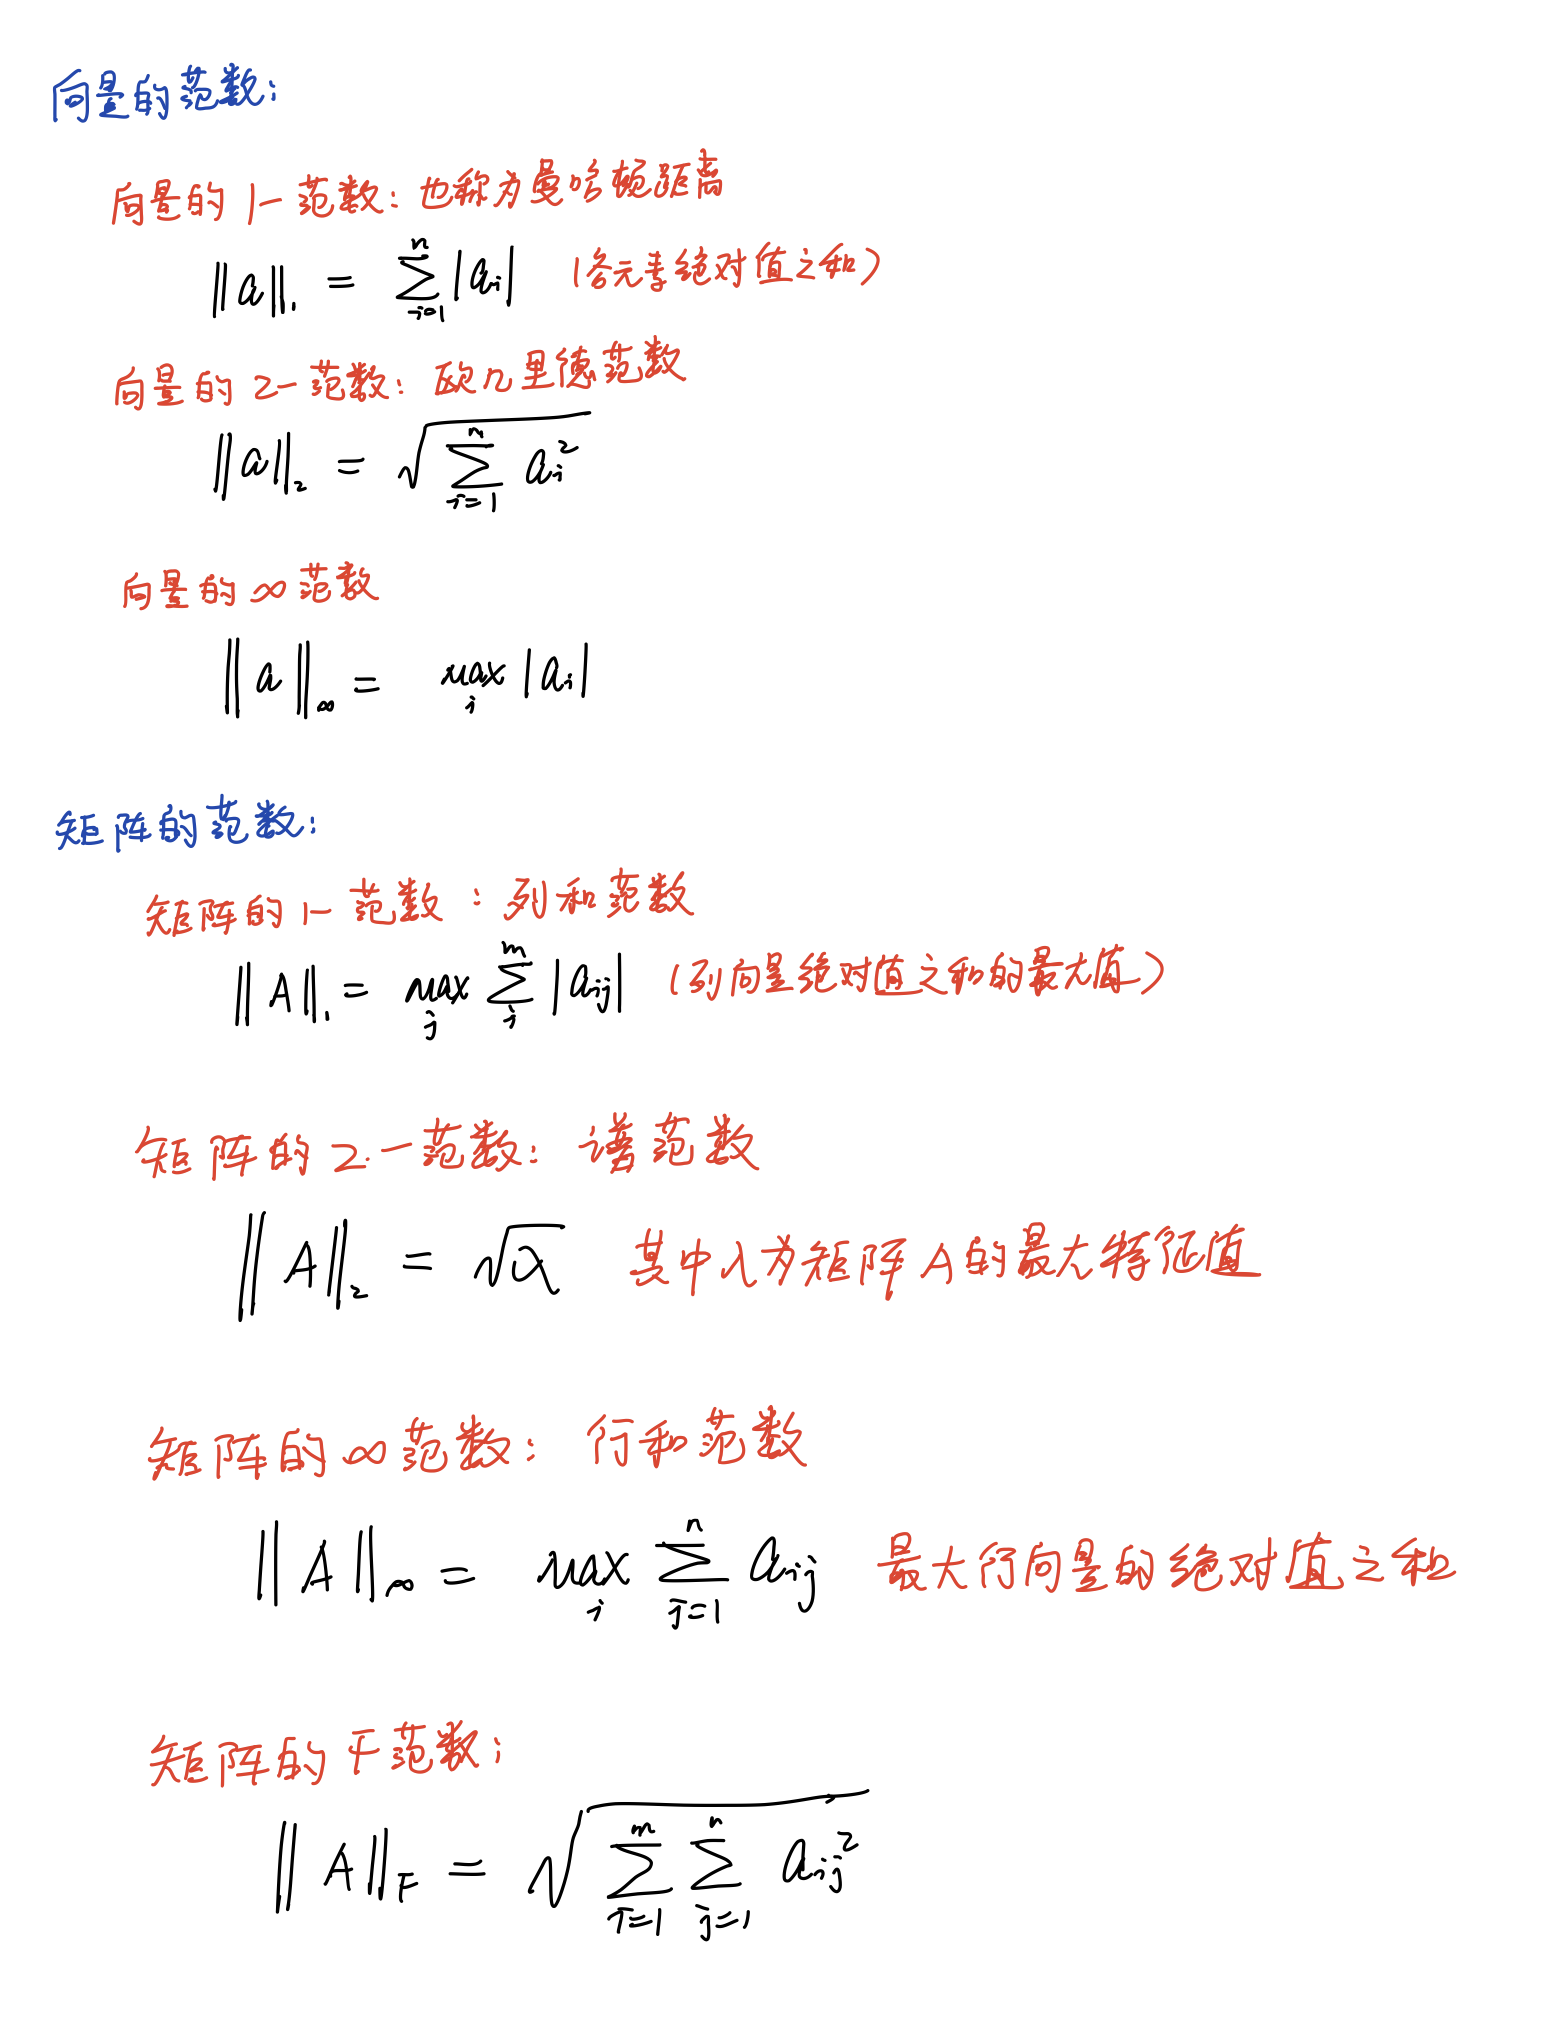 向量的范数：
向量的 1-范数：也称为曼哈顿距离
‖a‖₁ = ∑_{i=1}^{n} |a_i| （各元素绝对值之和）
向量的 2-范数：欧几里德范数
‖a‖₂ = √(∑_{i=1}^{n} a_i²)
向量的 ∞ 范数
‖a‖_∞ = max_i |a_i|
矩阵的范数：
矩阵的 1-范数：列和范数
‖A‖₁ = max_j ∑_{i}^{m} |a_ij| （列向量绝对值之和的最大值）
矩阵的 2-范数：谱范数
‖A‖₂ = √λ 其中 λ 为矩阵 A 的最大特征值
矩阵的 ∞ 范数：行和范数
‖A‖_∞ = max_i ∑_{j=1}^{n} a_ij 最大行向量的绝对值之和
矩阵的 F 范数；
‖A‖_F = √(∑_{i=1}^{m} ∑_{j=1}^{n} a_ij²)